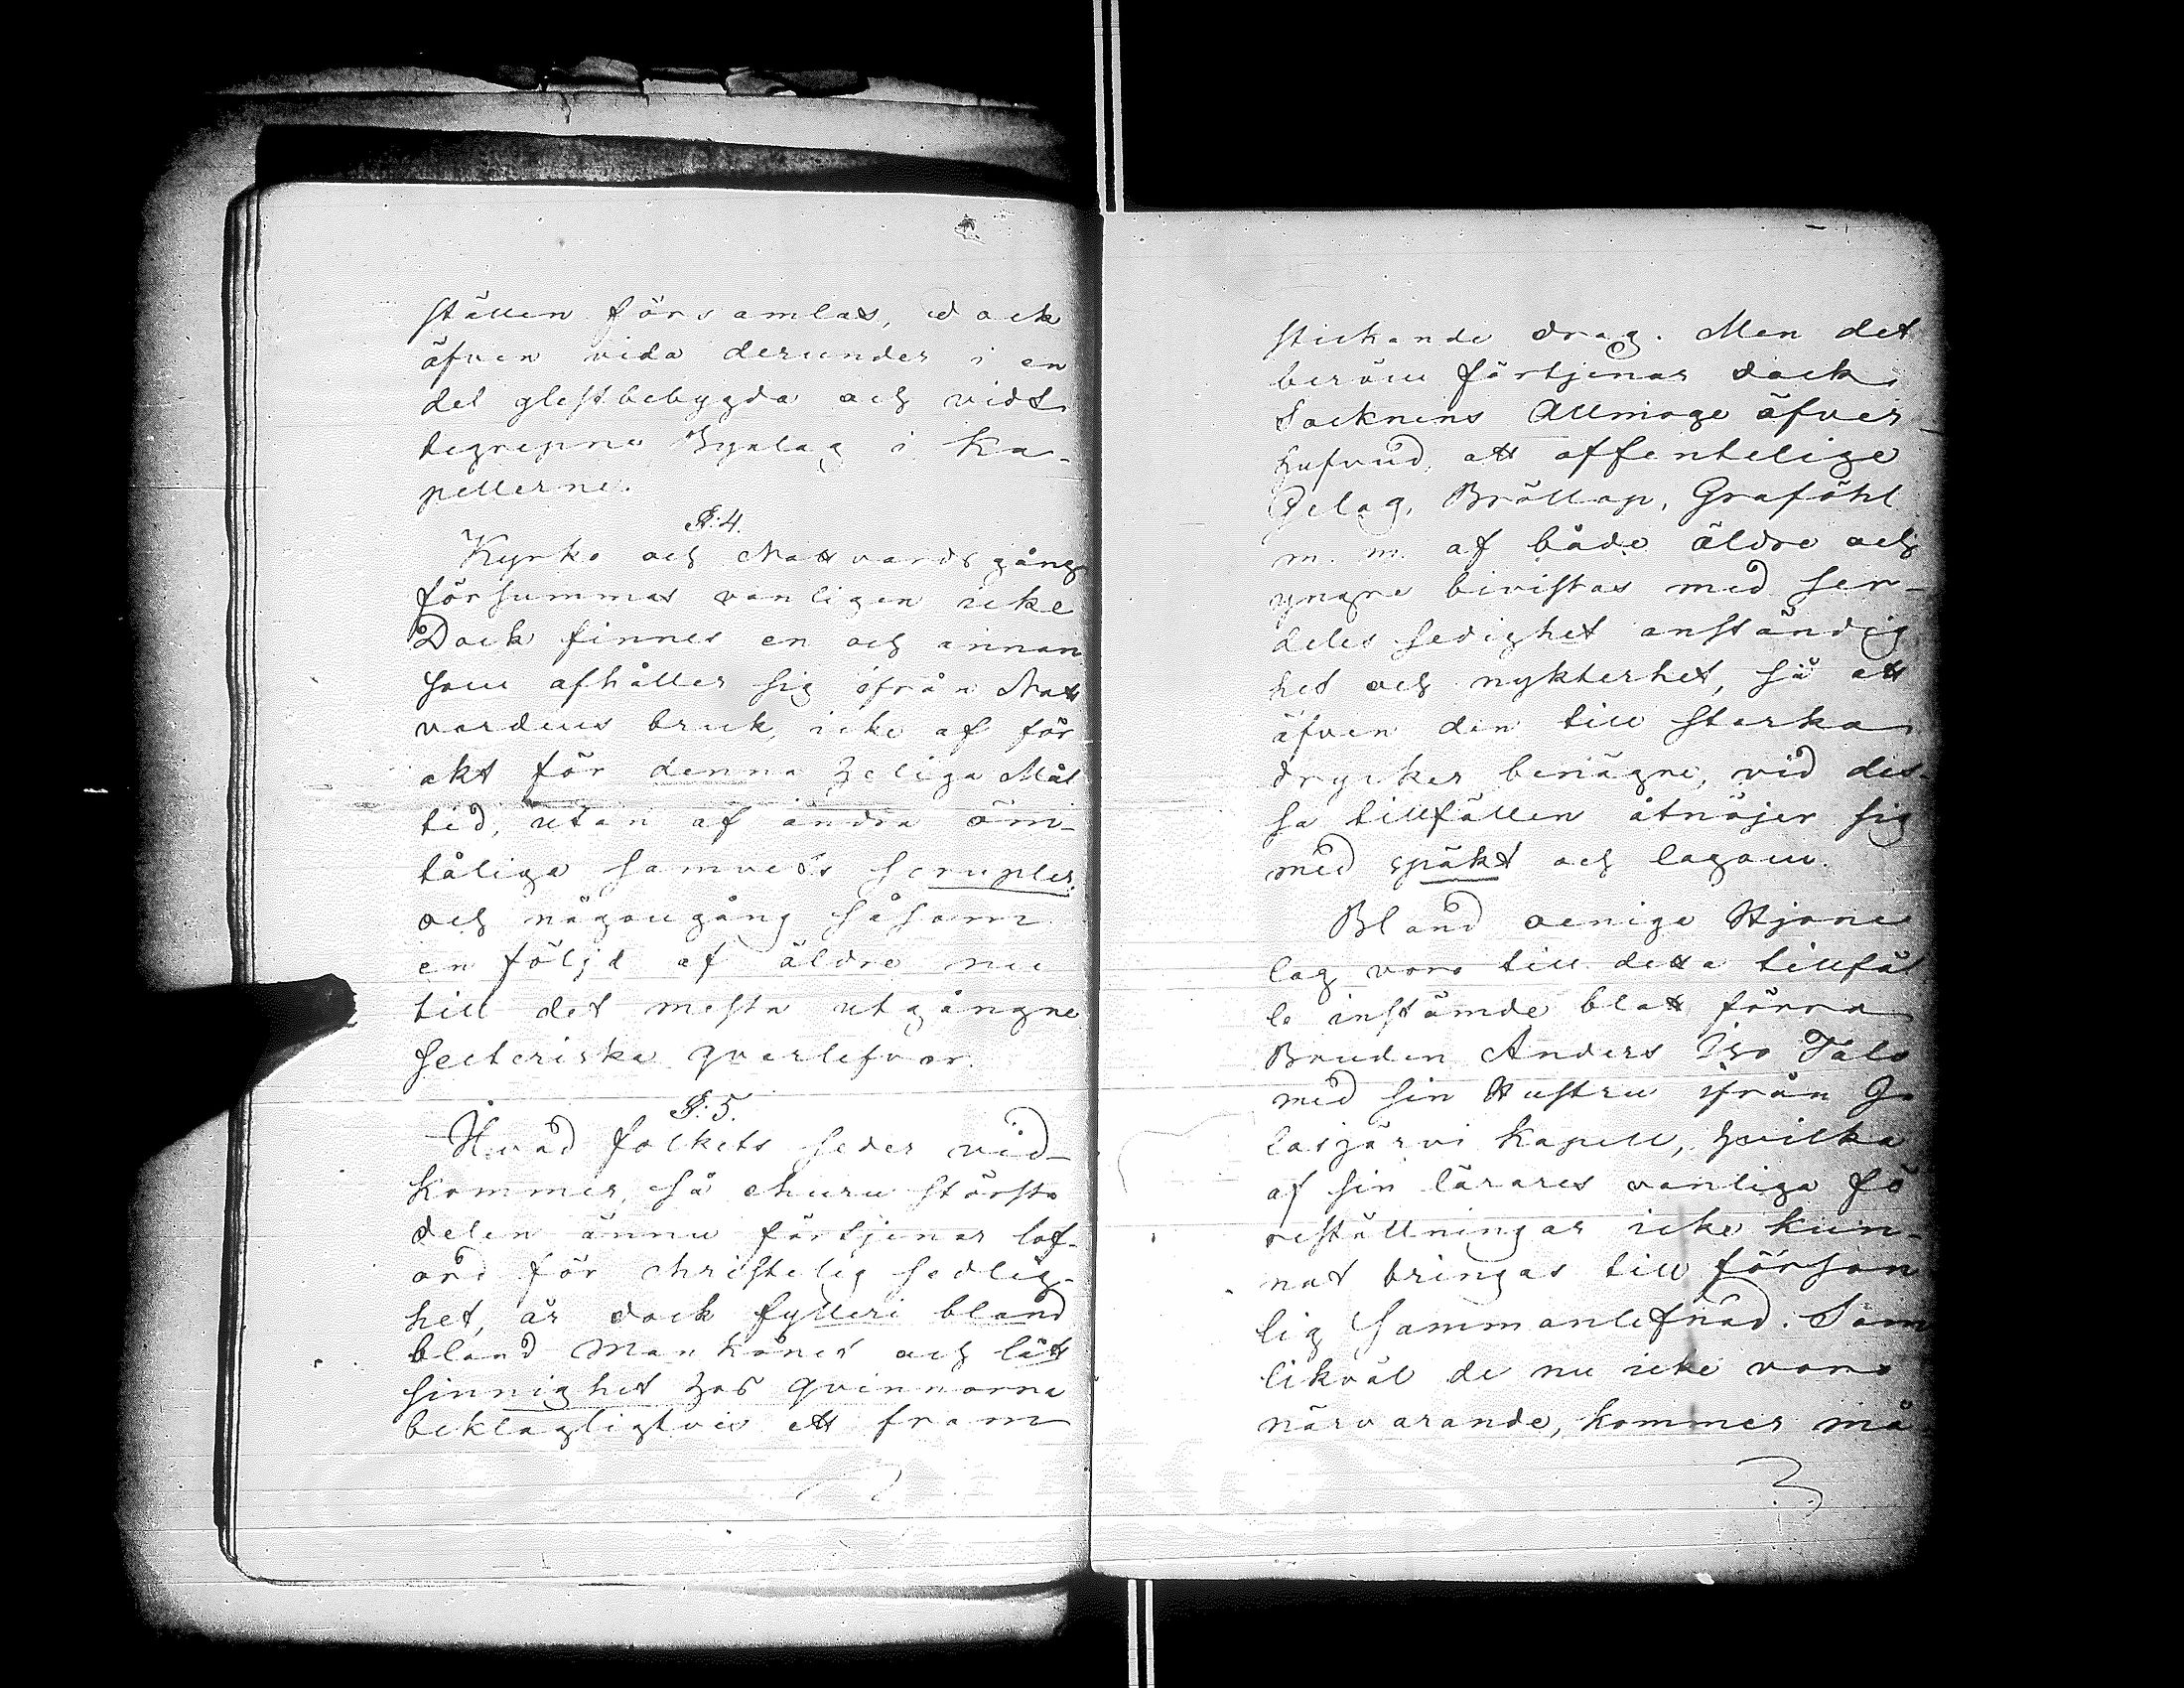 ställen församlas, dock
äfven vida derunder i en
del glest bebygda och vidt
begrepne Byalag i Ka-
pellerne.
§: 4.
Kyrko och Nattvards gång
försummas vanligen icke
Dock finnes en och annan
som afhåller sig ifrån Natt
vardens bruk, icke af för
akt för denna heliga Mål
tid, utan af andra öm-
tåliga samvets scrupler.
och någon gång såsom
en följd af äldre nu
till det mesta utgångne
secteriska qvarlefvor.
§: 5.
Hvad folkets seder vid-
kommer, så churu största
delen ännu förtjenar lof-
ord för christelig sedlig-
het, är dock fylleri bland
bland Mankönet och lätt
sinnighet hos qvinnorna
beklagligtvis ett fram
stickande drag. Men det
beröm förtjenar dock
Socknens Allmoge öfver
hufvud, att offentelige
Gelag, Bröllop, Graföhl
m. m. af både äldre och
yngre bivistas med ser-
deles sedighet anständig
het och nykterhet, så att
äfven den till starka
drycker benägne, vid des-
sa tillfällen åtnöjer sig
med spakt och lagom.
Bland oenige Hjone
lag voro till detta tillfäl
le instämde blatt förra
Bruden Anders Iso Talo
med sin Hustru ifrån Ja
lasjärvi Kapell, hvilka
af sin lärares vanliga fö
reställningar icke kun-
nat bringas till förson
lig Sammanlefnad. Som
likväl de nu icke voro
närvarande, kommer må